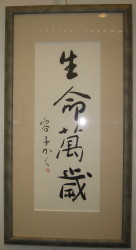 生命萬歲
容子かく